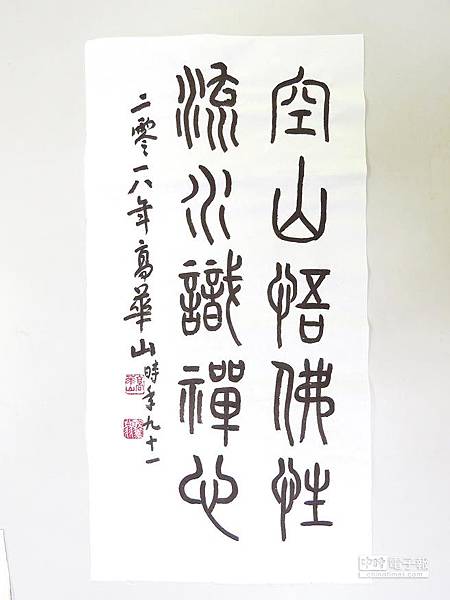 空山悟佛性
流水識禪心
二零一八年高華山時年九十一
中時電子報
chinatimes.com